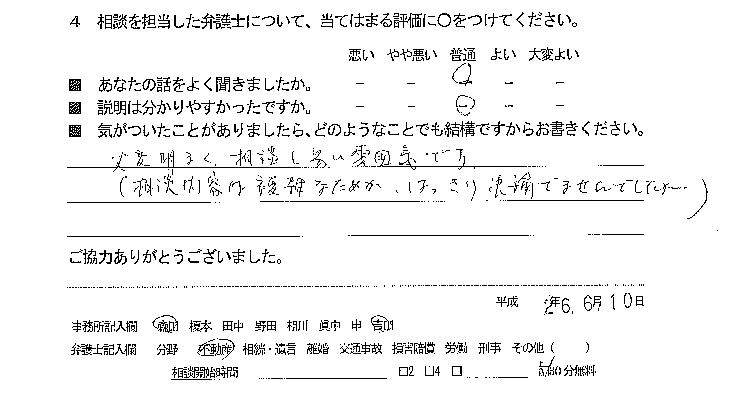 4 相談を担当した弁護士について、当てはまる評価に○をつけてください。
悪い やや悪い 普通 よい 大変よい
あなたの話をよく聞きましたか。 － － － － －
説明は分かりやすかったですか。 － － － － －
気がついたことがありましたら、どのようなことでも結構ですからお書きください。
大変明るく、相談し易い雰囲気です。
(相談内容は複雑なためか、はっきり決論でませんでした。)
ご協力ありがとうございました。
平成 26年 6月10日
事務所記入欄 榎本 田中 野田 相川 眞中 申 吉田
弁護士記入欄 分野 不動産 相続・遺言 離婚 交通事故 損害賠償 労働 刑事 その他( )
相談開始時間 □2 □4 □ 分無料